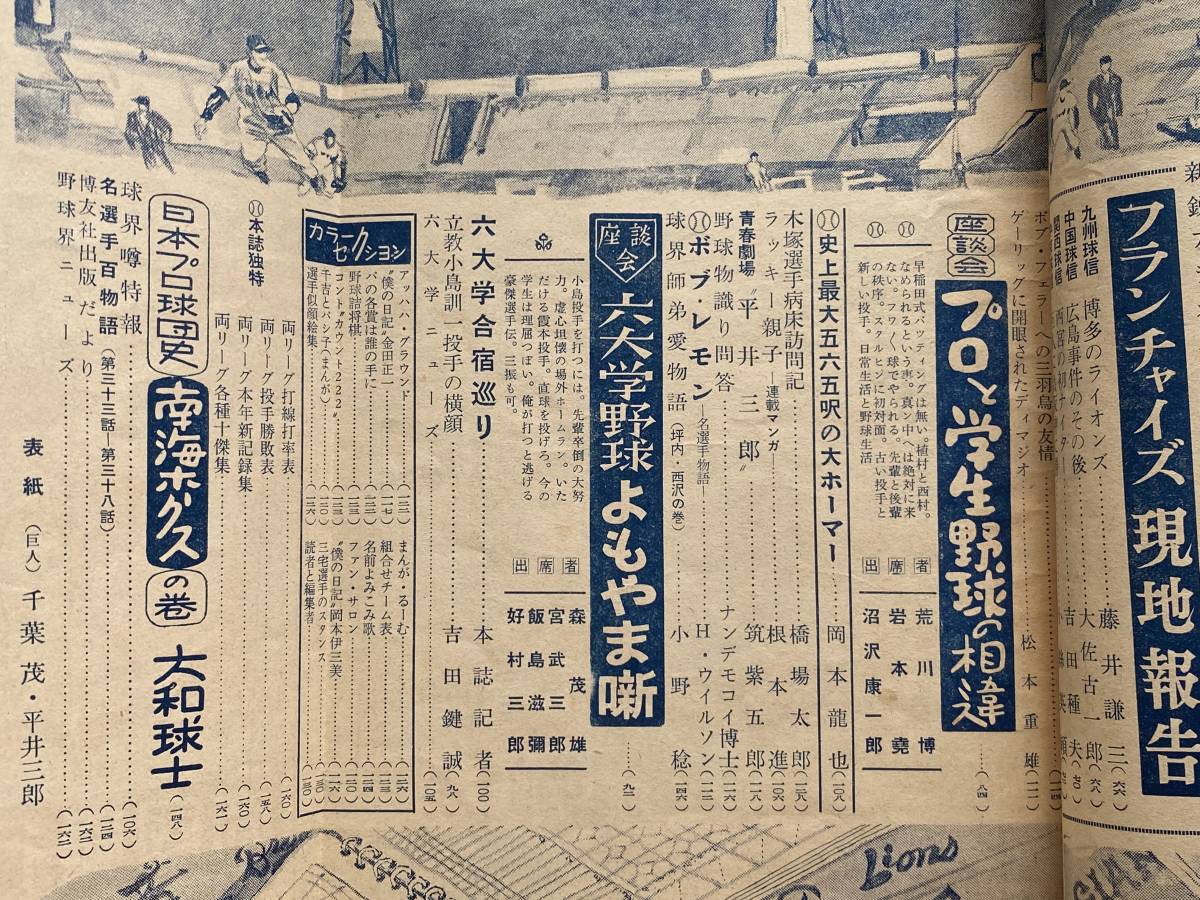 新
フランチャイズ現地報告
九州球信 博多のライオンズ 藤井謙三(六六)
中国球信 広島事件のその後 大佐古一郎(六八)
関西球信 西宮の初ナイター 吉田種夫(七〇)
ボブ・フェラーへの三羽烏の友情
ゲーリッグに開眼されたディマジオ 松本重雄
座談会 プロと学生野球の相違(八四)
早稲田式バッティングは無い。植村と西村。
なめられるという事。真ン中へは絶対に来
ない。フワフワ球でやられる。先輩と後輩
の秩序。スタルヒンに初対面。古い投手と
新しい投手。日常生活と野球生活
出席者
荒川博
岩本堯
沼沢康一郎
史上最大五六五呎の大ホーマー 岡本龍也(一〇八)
木塚選手病床訪問記 橋場太郎(一二八)
ラッキー親子―連載マンガ― 根本進(一〇六)
青春劇場 〝平井三郎〟 筑紫五郎(一一八)
野球物識り問答 ナンデモコイ博士
ボブ・レモン―名選手物語― H・ウイルソン(一一二)
球界師弟愛物語(坪内・西沢の巻) 小野稔(四六)
座談会 六大学野球よもやま噺(九二)
小島投手を打つには。先輩卒倒の大努
力。虚心坦懐の場外ホームラン。いた
だける霞本投手。直球を投げろ。今の
学生は理屈っぽい。俺が打つと逃げる
豪傑選手伝。三振も可。
出席者
森茂雄
宮武三郎
飯島滋彌
好村三郎
六大学合宿巡り 本誌記者(一〇〇)
立教小島訓一投手の横顔 吉田鍵誠(九八)
六大学ニューズ(一〇五)
カラーセクション
アッハハ・グラウンド
〝僕の日記〟金田正一(一一七)
パの各賞は誰の手に
野球詰将棋
コント〝カウント2222〟
千吉とバン子(まんが)
選手似顔絵集(一二六)
まんが るーむ
組合せチーム表
名前よみこみ歌
ファン・サロン
〝僕の日記〟岡本伊三美
三宅選手のスタンス
読者と編集者
本誌独特
両リーグ打線打率表(一六〇)
両リート投手勝敗表(一五八)
両リーグ本年新記録集(一六〇)
両リーグ各種十傑集(一六一)
日本プロ球団史 南海ホークスの巻 大和球士(一四八)
球界噂特報(一〇六)
名選手百物語(第三十三話―第三十八話)(一二四)
博友社出版だより(一六二)
野球界ニューズ(一六二)
表紙(巨人)千葉茂・平井三郎
Lions